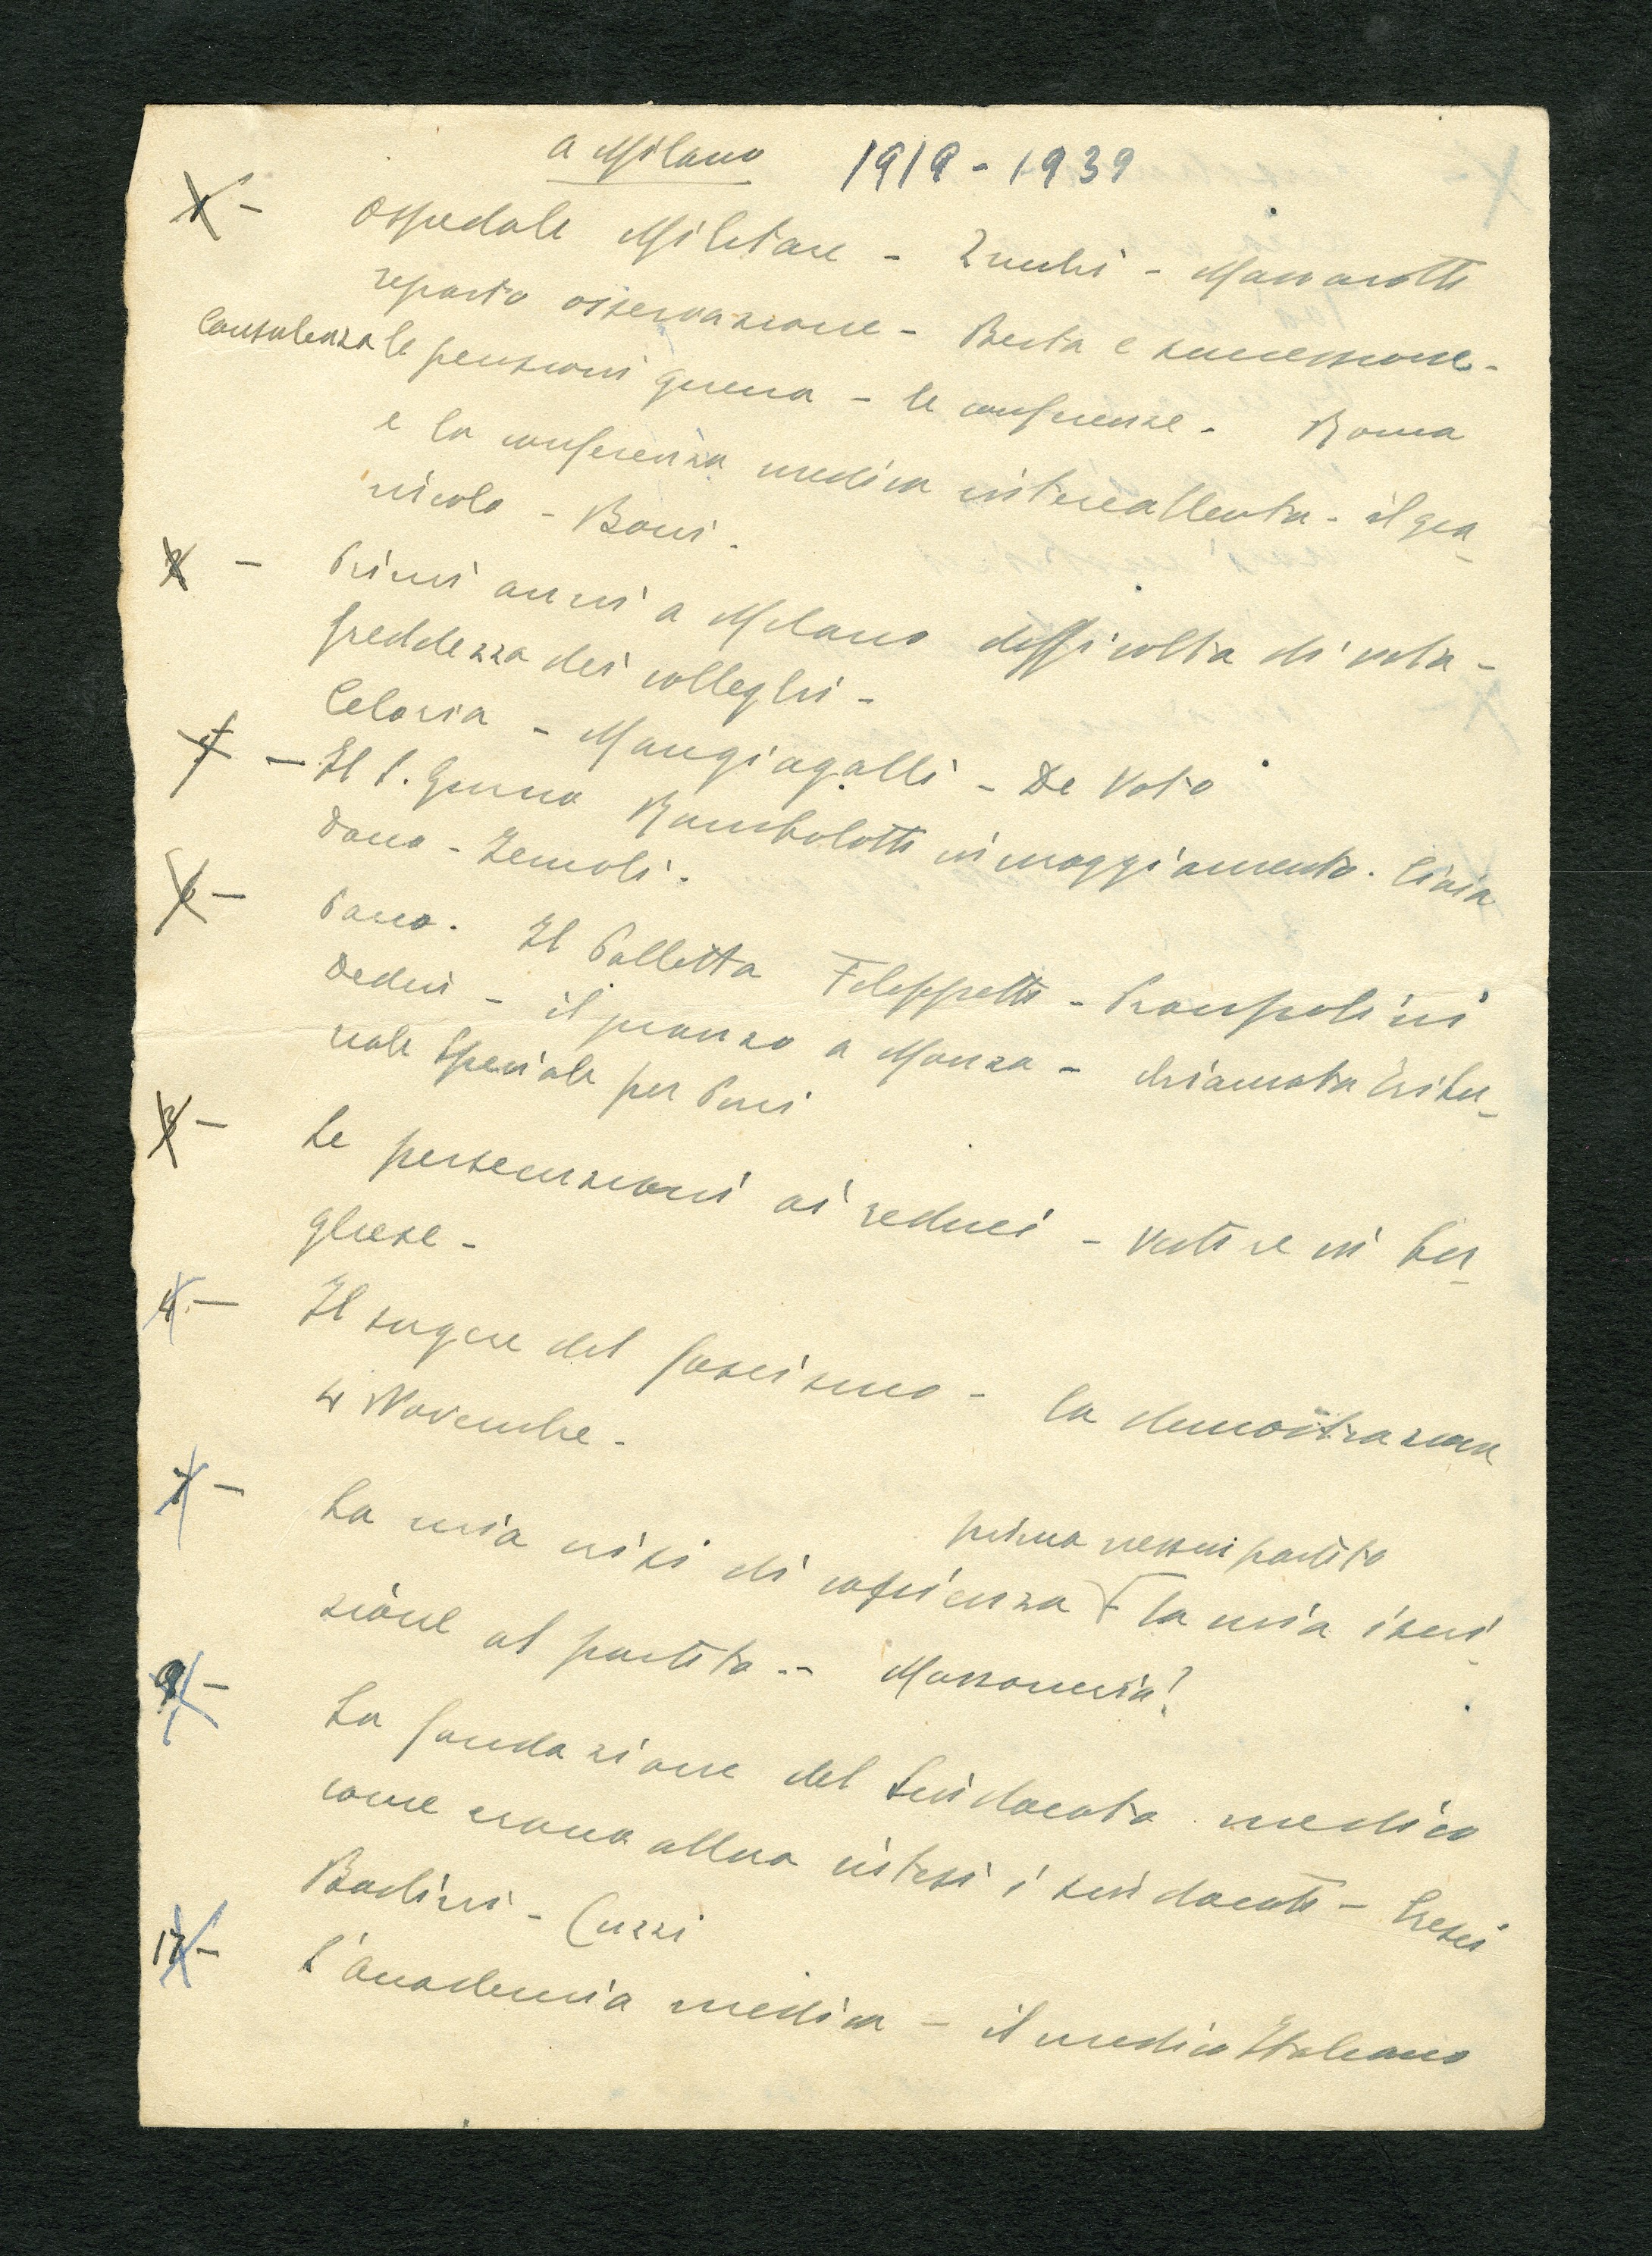 a Milano 1919-1939
1 - Ospedale Militare - Zucchi - Massarotti
reparto osservazione - Besta e successione -
Consulenza le pensioni guerra - le conferenze - Roma
e la conferenza medica interalleata - il gia
nicolo - Boni.
2 - Primi anni a Milano difficolta di vita -
freddezza dei colleghi -
Celoria - Mangiagalli - De Voto
5 - Il P. Gemma Rambolotti
Dano - Zemoli.
6 - Pano. Il Palletta Filippetti - Prampolini
Dedin - il pranzo a Monza - chiamata Tribu-
nale Speciale per Pini
3 - Le persecuzioni ai reduci - vestire in bor-
ghese -
4 - Il sorgere del fascismo - la dimostrazione
4 Novembre -
prima nessun partito
7 - La mia crisi di coscienza la mia iscri-
zione al partito -- Massoneria?
9 - La fondazione del Sindacato medico
come erano allora intesi i sindacati -
Badini - Cuzzi
17 - L'accademia medica - il medico Italiano